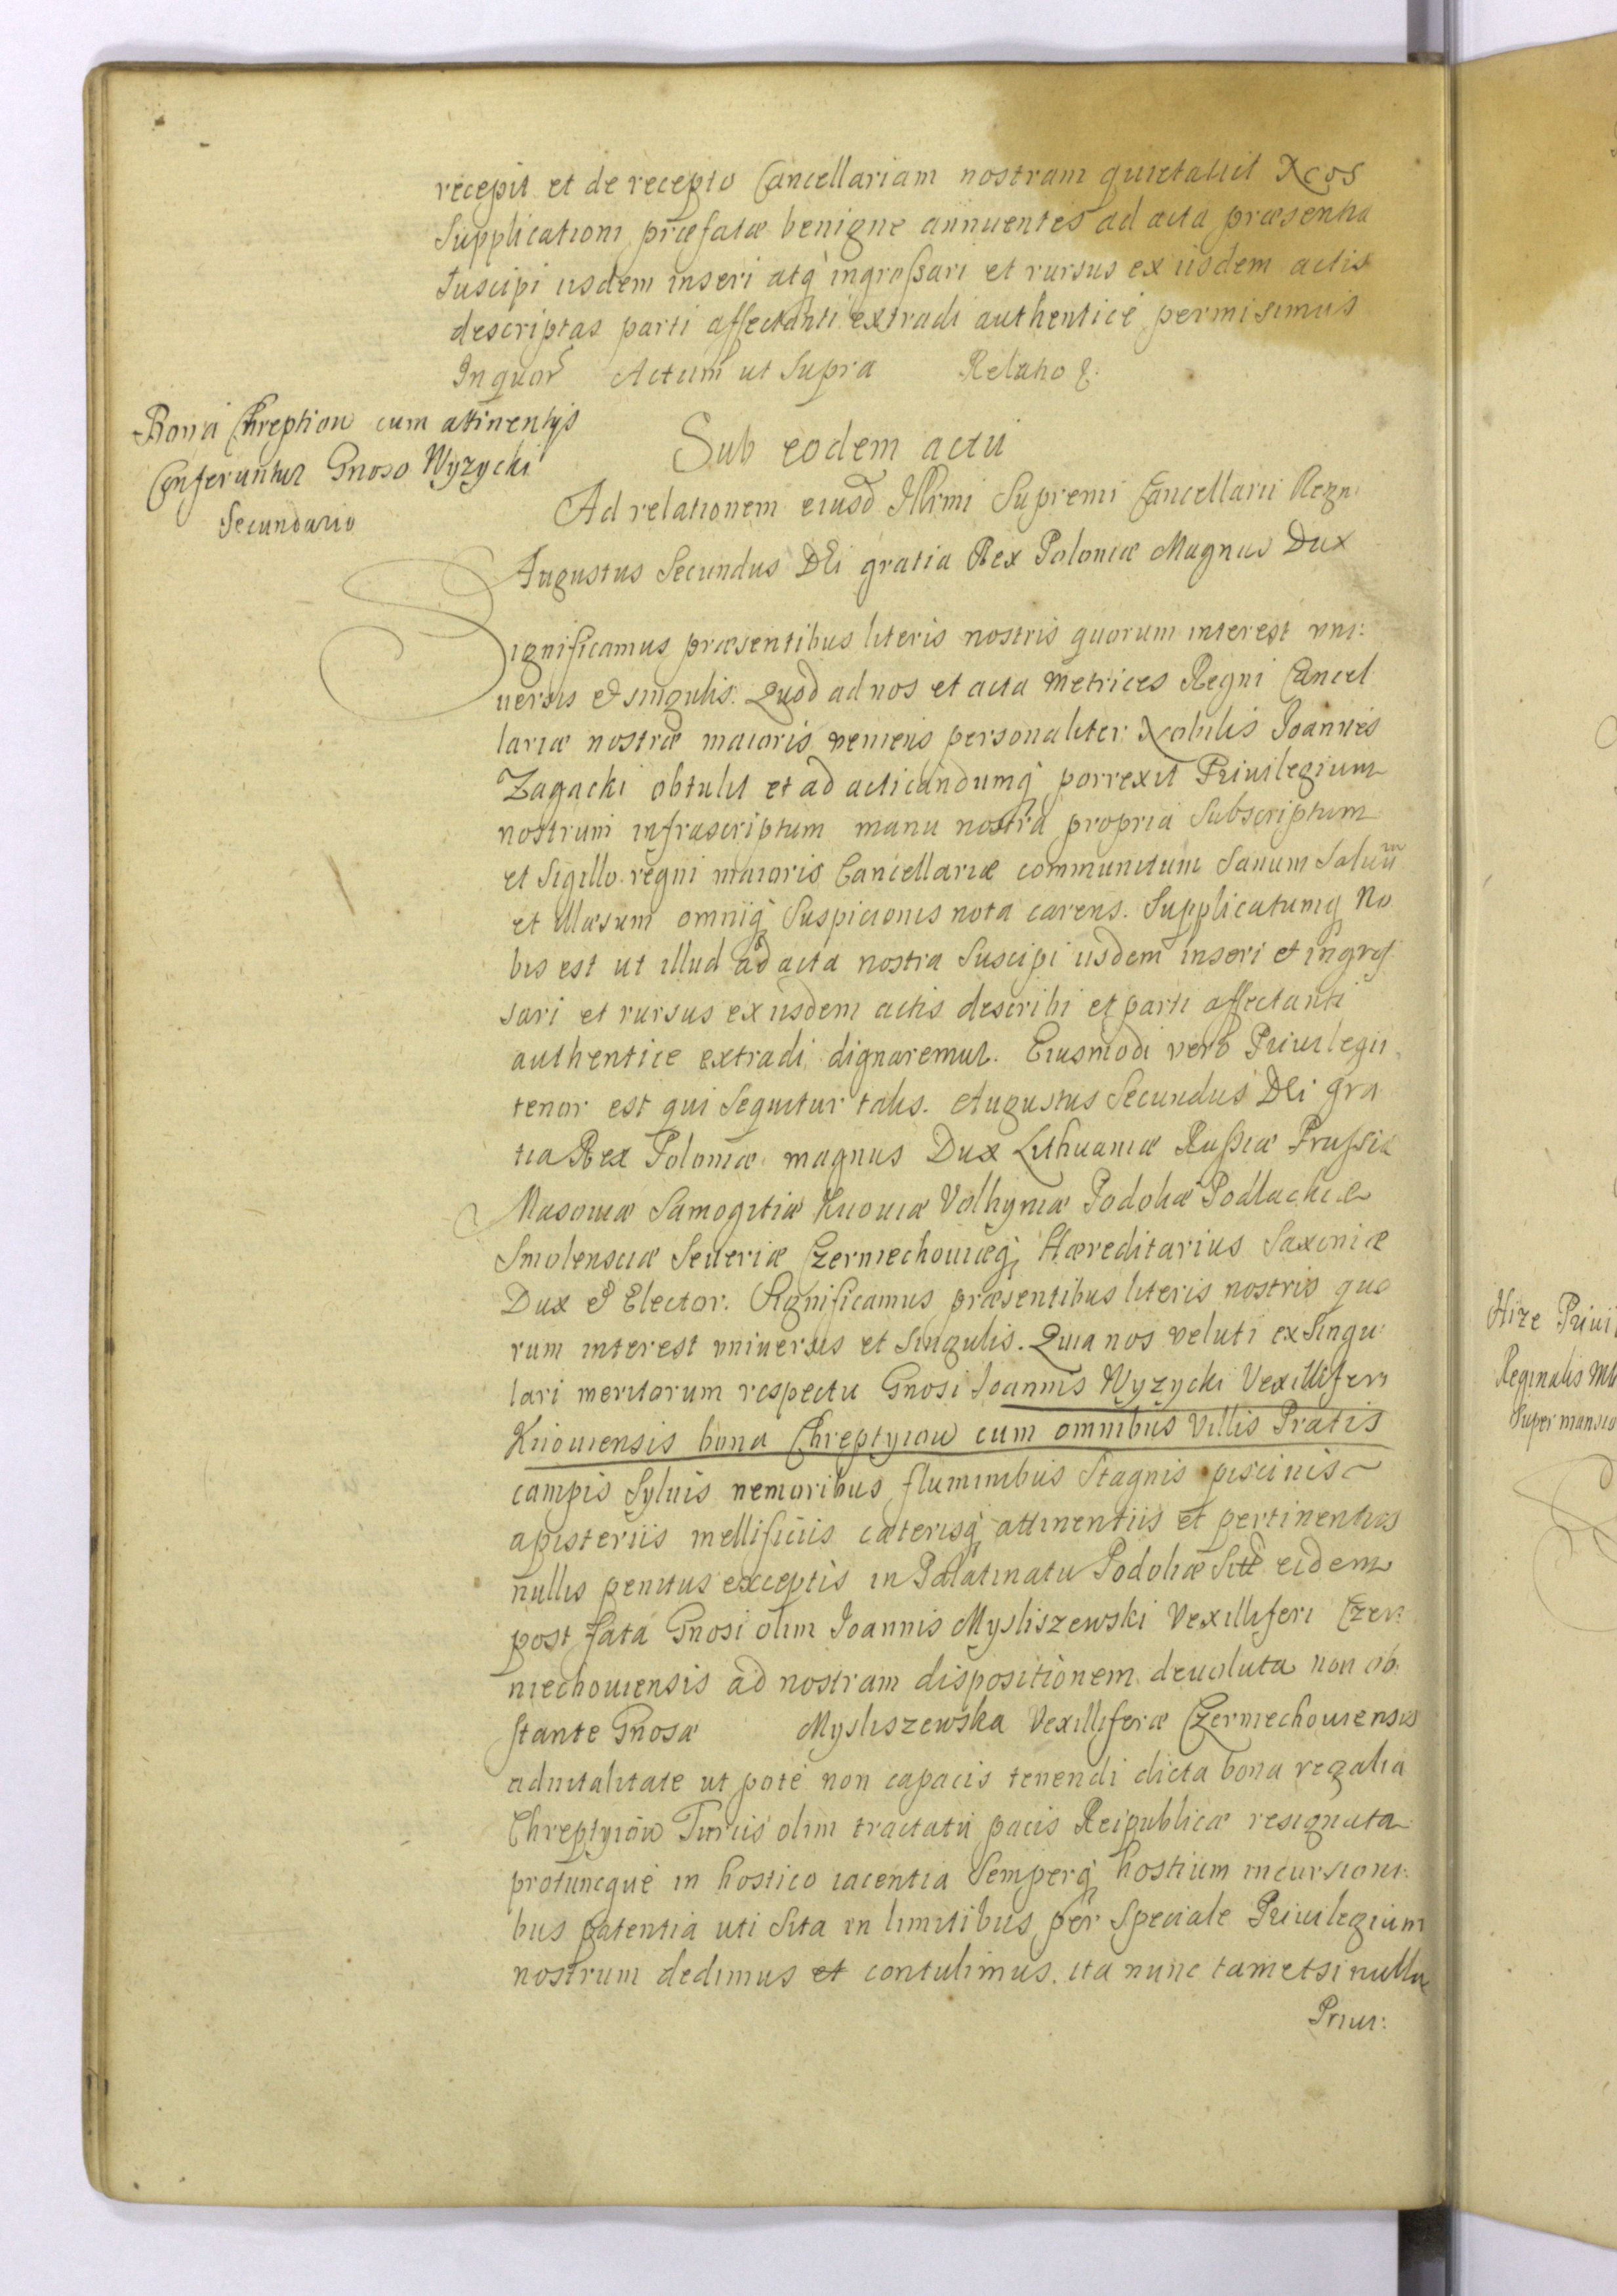 recepit et de recepto Cancellariam nostram quietavit Nos
Supplicationi præfatæ benigne annuentes ad acta præsentia
Suscipi iisdem inseri atq́ ingroßari et rursus ex iisdem actis
descriptas parti affectanti extradi authenticè permisimus
In quor Actum ut Supra Relatio
Bona Chreptiow cum attinentijs
Conferuntur Gnoso Wyzycki
Secundario
Sub eodem actu
Ad relationem eiusd Illrmi Supremi Cancellarii Regni
Augustus Secundus DEi gratia Rex Poloniæ Magnus Dux
Significamus præsentibus literis nostris quorum interest uni:
uersis et singulis. Quod ad nos et acta Metrices Regni Cancel
lariæ nostræ maioris veniens personaliter Nobilis Joannes
Zagacki obtulit et ad acticandumq́ porrexit Priuilegium
nostrum infrascriptum manu nostra propria Subscriptum
et Sigillo regni maioris Cancellariæ communitum Sanum Saluum
et illæsum omniq́ Suspicionis nota carens. Supplicatumq No
bis est ut illud ad acta nostra Suscipi iisdem inseri et ingros
sari et rursus ex iisdem actis describi et parti affectanti
authentice extradi dignaremur. Eiusmodi verò Priuilegii
tenor est qui Sequitur talis. Augustus Secundus DEi gra
tia Rex Poloniæ magnus Dux Lithuaniæ Rußiæ Prussiæ
Masouiæ Samogitiæ Kiiouiæ Volhyniæ Podoliæ Podlachiæ
Smolensciæ Seueriæ Czerniechouiæq́ Hæreditarius Saxoniæ
Dux et Elector. Significamus præsentibus literis nostris quo
rum interest vniuersis et Singulis. Quia nos veluti ex Singu:
lari meritorum respectu Gnosi Joannis Wyzycki Vexilliferi
Kiiouiensis bona Chreptyiow cum omnibus Villis Pratis
campis Syluis nemoribus fluminibus Stagnis piscinis
apisteriis mellificiis cæterisq́ attinentiis et pertinentiis
nullis penitus exceptis in Palatinatu Podoliæ Sita eidem
post fata Gnosi olim Joannis Mysliszewski Vexilliferi Czer
niechouiensis ad nostram dispositionem deuoluta non ob:
stante Gnosæ Mysliszewska Vexilliferæ Czerniechouiensis
aduitalitate ut potè non capacis tenendi dicta bona regalia
Chreptyiow Turcis olim tractatu pacis Reipublicæ resignata
protuncque in hostico iacentia Semperq́ hostium incursioni:
bus patentia uti Sita in limitibus per Speciale Priuilegium
nostrum dedimus et contulimus. ita nunc tametsi nullæ
Priui:
Hize Priuil
Reginalis
Super mansio